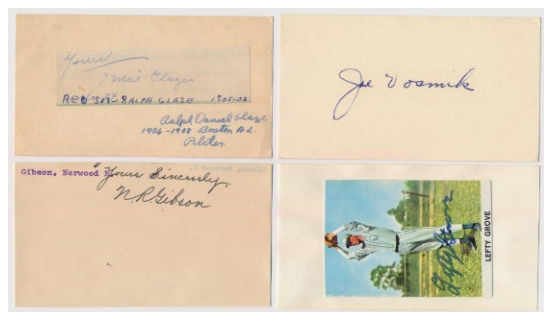 Yours
"Ma" Glaze
RED SOX - RALPH GLAZE 1905-06
Ralph Daniel Glaze
1906-1908 Boston A.L.
Pitcher
Joe Vosmik
Gibson, Norwood R.
"Yours Sincerely,
N.R. Gibson
LEFTY GROVE
Lefty Grove